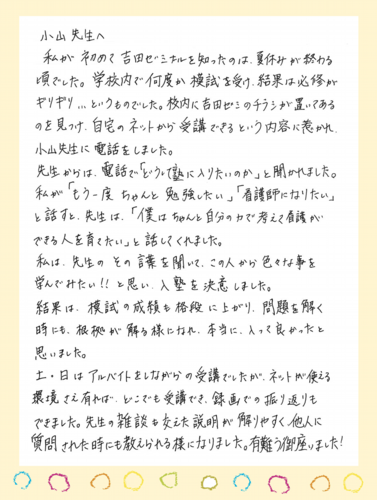 小山先生へ
私が初めて吉田ゼミナルを知ったのは、夏休みが終わる
頃でした。学校内で何度か模試を受け、結果は必修が
ギリギリ…というものでした。校内に吉田ゼミのチラシが置いてある
のを見つけ、自宅のネットから受講できるという内容に惹かれ、
小山先生に電話をしました。
先生からは、電話で「どうして塾に入りたいのか」と聞かれました。
私が「もう一度ちゃんと勉強したい」「看護師になりたい」
と話すと、先生は、「僕はちゃんと自分の力で考えて看護が
できる人を育てたい」と話してくれました。
私は、先生のその言葉を聞いて、この人から色々な事を
学んでみたい!!と思い、入塾を決意しました。
結果は、模試の成績も格段に上がり、問題を解く
時にも、根拠が解る様になれ、本当に、入って良かったと
思いました。
土・日はアルバイトをしながらの受講でしたが、ネットが使える
環境さえ有れば、どこでも受講でき、録画での振り返りも
できました。先生の雑談も交えた説明が解りやすく、他人に
質問された時にも教えられる様になりました。有難う御座いました!